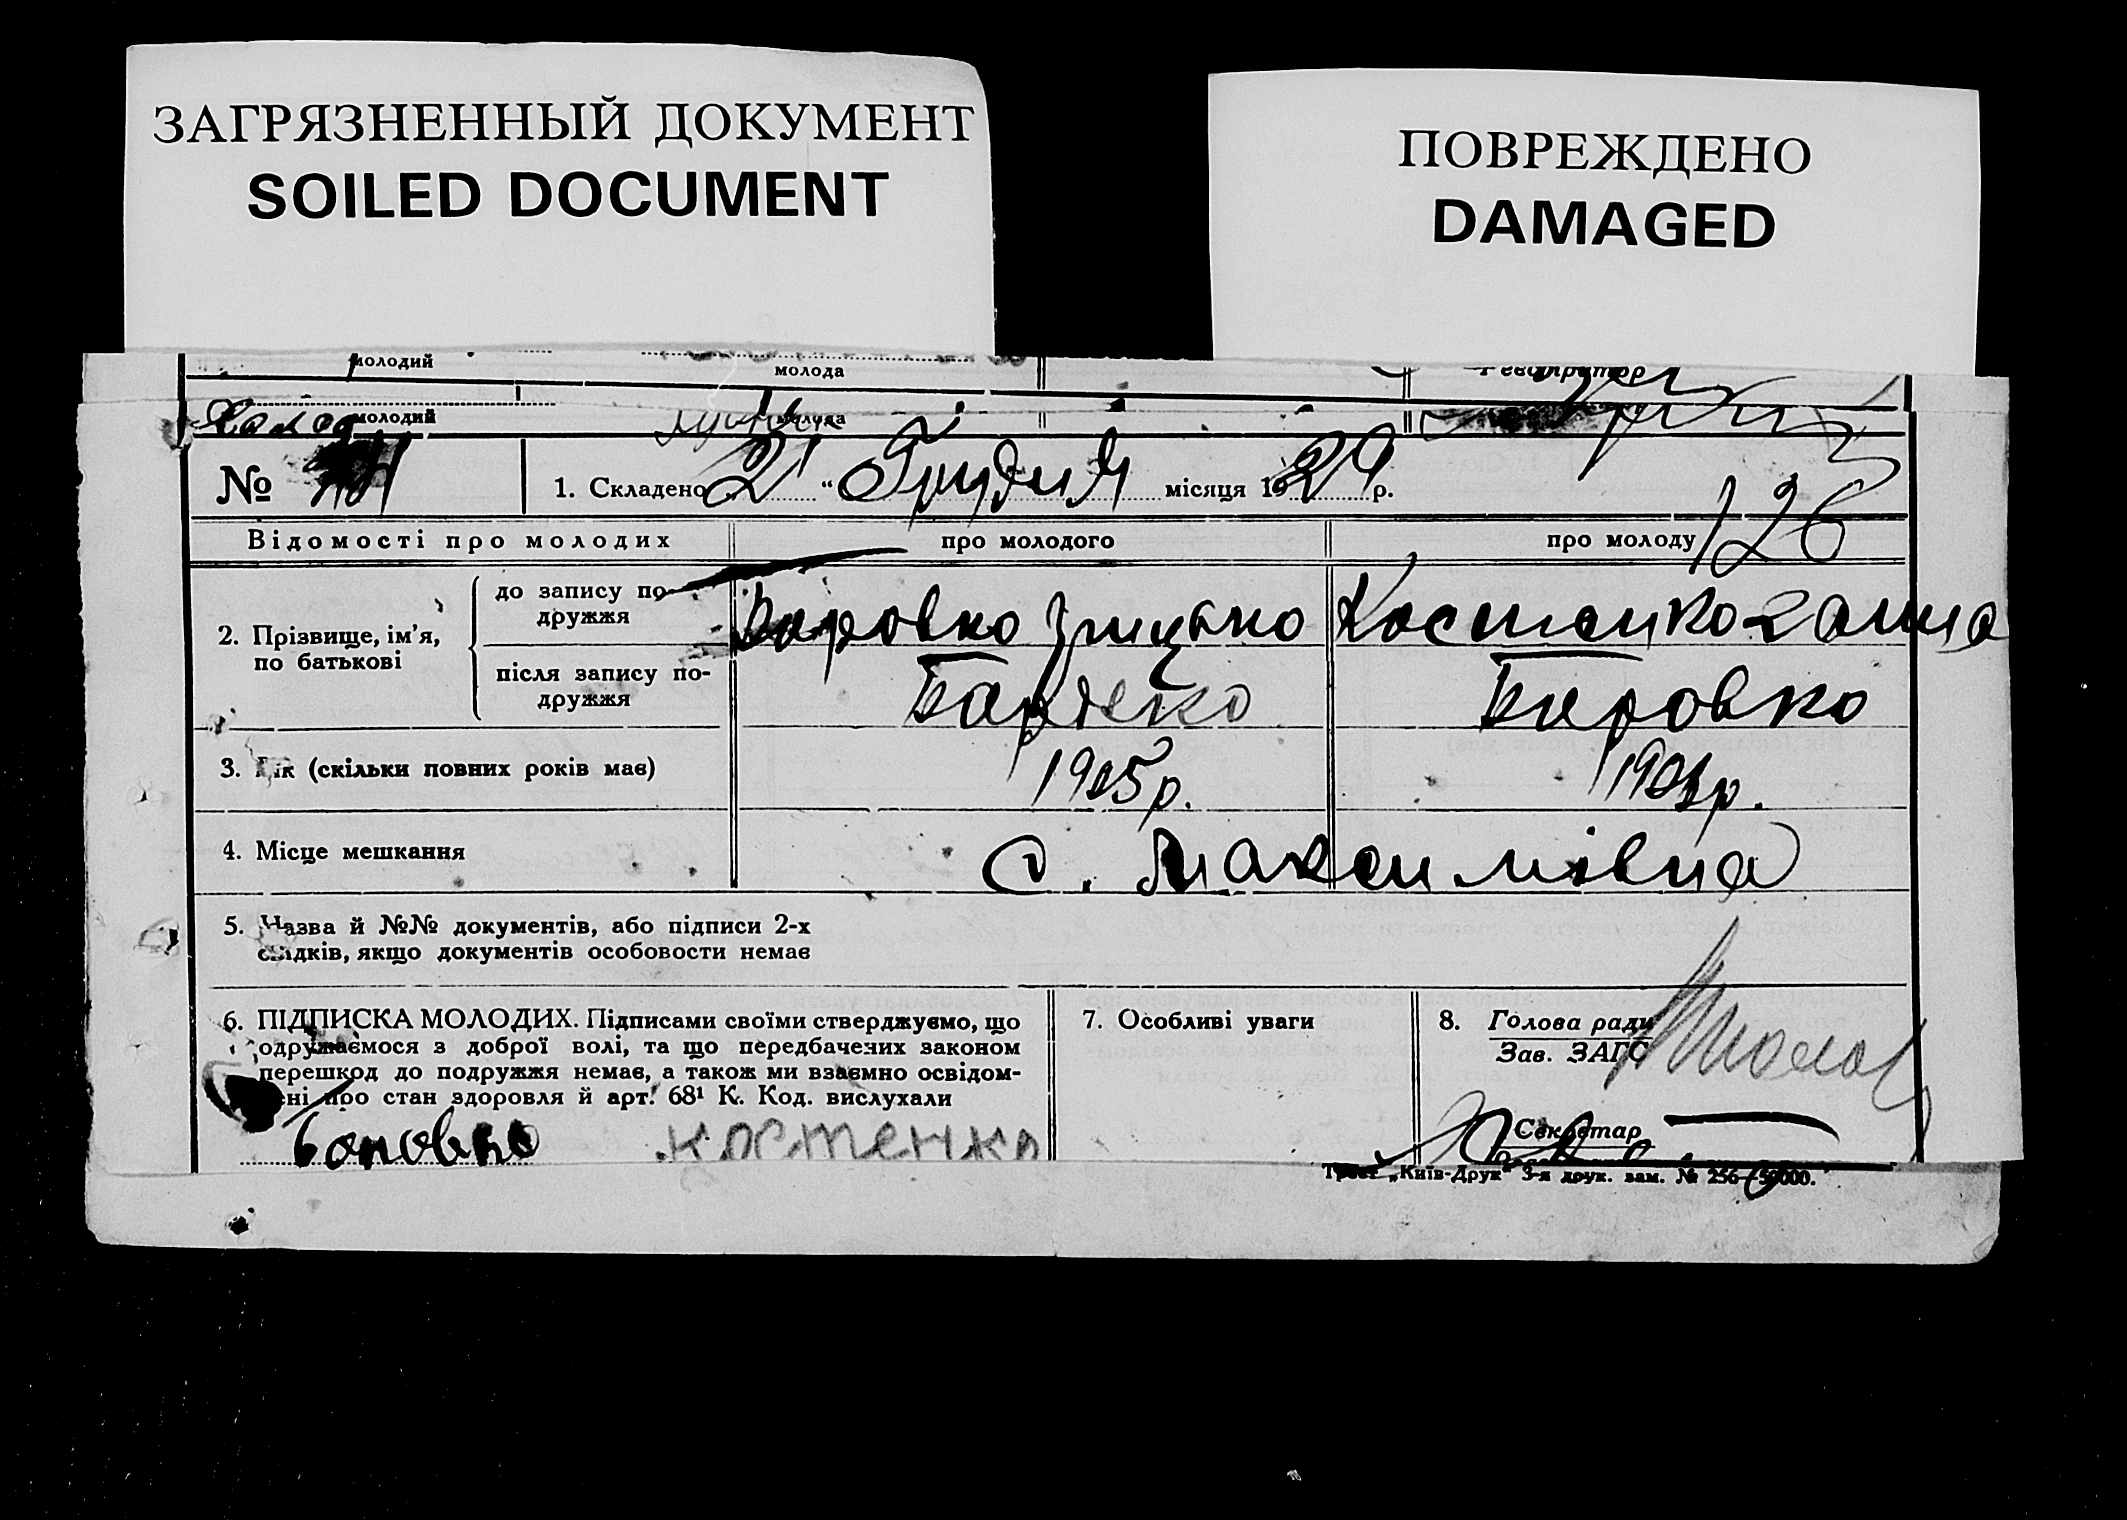 ЗАГРЯЗНЕННЫЙ ДОКУМЕНТ
SOILED DOCUMENT
ПОВРЕЖДЕНО
DAMAGED
молодий молода
молодий молода
№ 1. Складено „ 21 “ Грудня місяця 1929 р.
126
Відомості про молодих про молодого про молоду
2. Прізвище, ім’я, по батькові
до запису подружжя
Боровко Грицько Костенко Ганна
після запису подружжя
Боровко Боровко
3. Рік (скільки повних років має) 1905 р. р.
4. Місце мешкання с. Максимівна
5. Назва й №№ документів, або підписи 2-х
свідків, якщо документів особовости немає
6. ПІДПИСКА МОЛОДИХ. Підписами своїми стверджуємо, що
одружаємося з доброї волі, та що передбачених законом
перешкод до подружжя немає, а також ми взаємно освідом-
ені про стан здоровля й арт. 68¹ К. Код. вислухали
Боровко костенко
7. Особливі уваги
8. Голова ради
Зав. ЗАГС
Секретар
Трест „Київ-Друк“ 3-я друк. зам. № 256—50000.